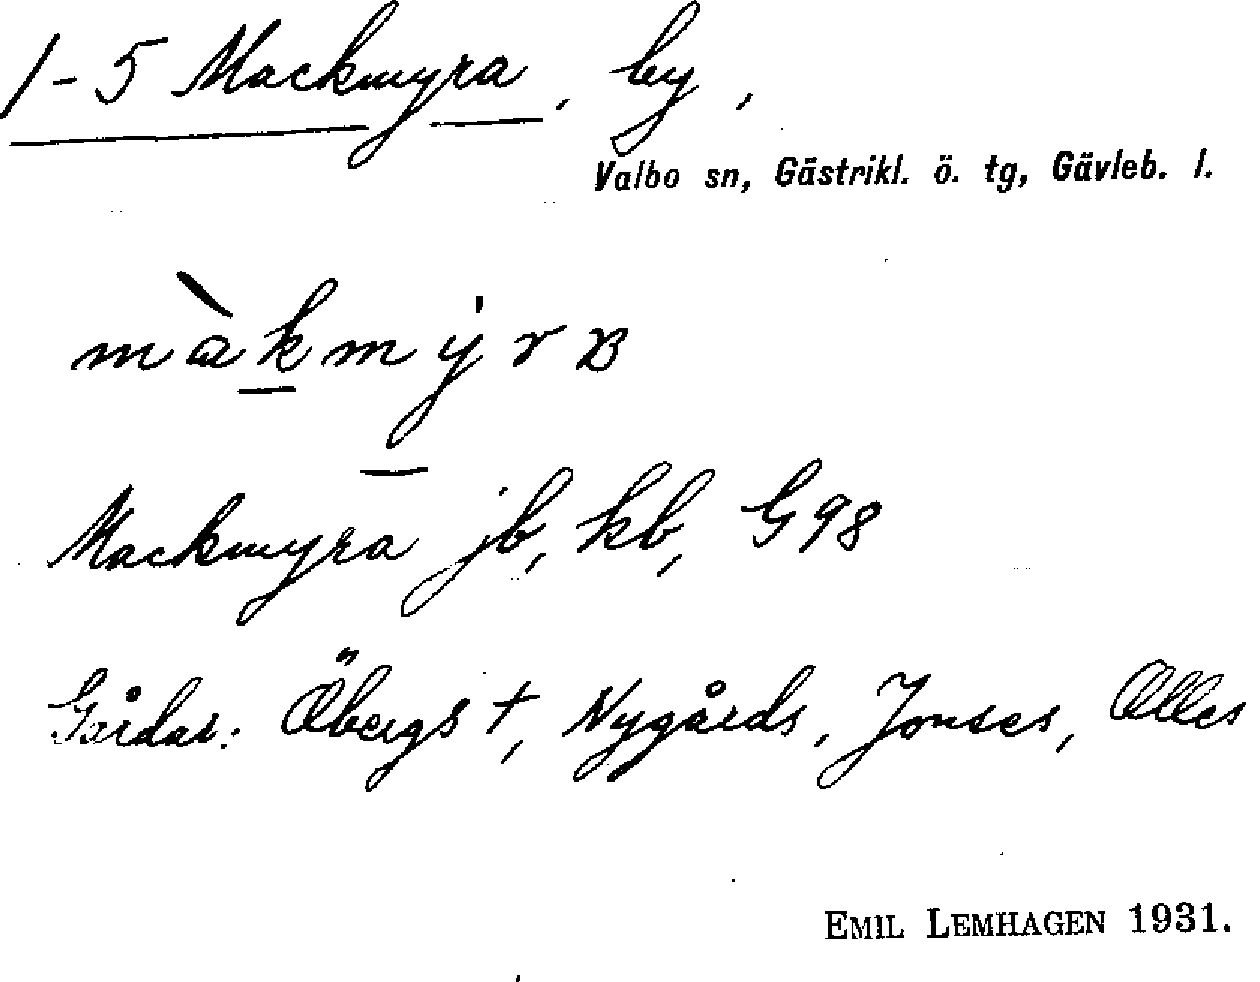 1-5 Mackmyra, by,
Valbo sn, Gästrikl. ö. tg, Gävleb. l.
Mackmyra jb, kb, G98
Gårdar: Öbergs †, Nygårds, Jonses, Olles
EMIL LEMHAGEN 1931.